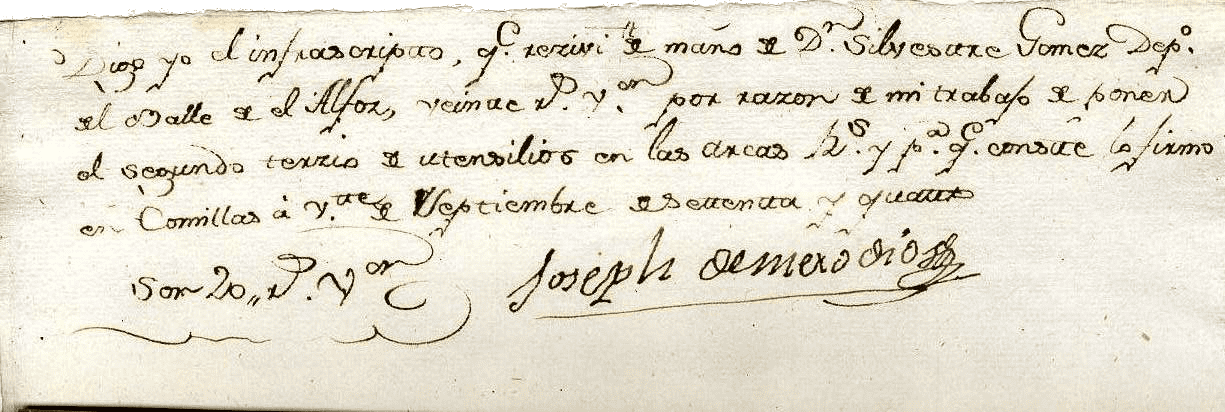 Digo yo el infrascripto, q.e rezivi de mano de D.n Silvestre Gomez Dep.o
del Valle de el Alfoz, veinte r.s v.on por razon de mi trabajo de poner
el segundo terzio de utensilios en las Arcas R.s y p.a q.e conste lo firmo
en Comillas à v.te de Septiembre de setenta y quatro
Son 20,, r.s V.on Joseph de